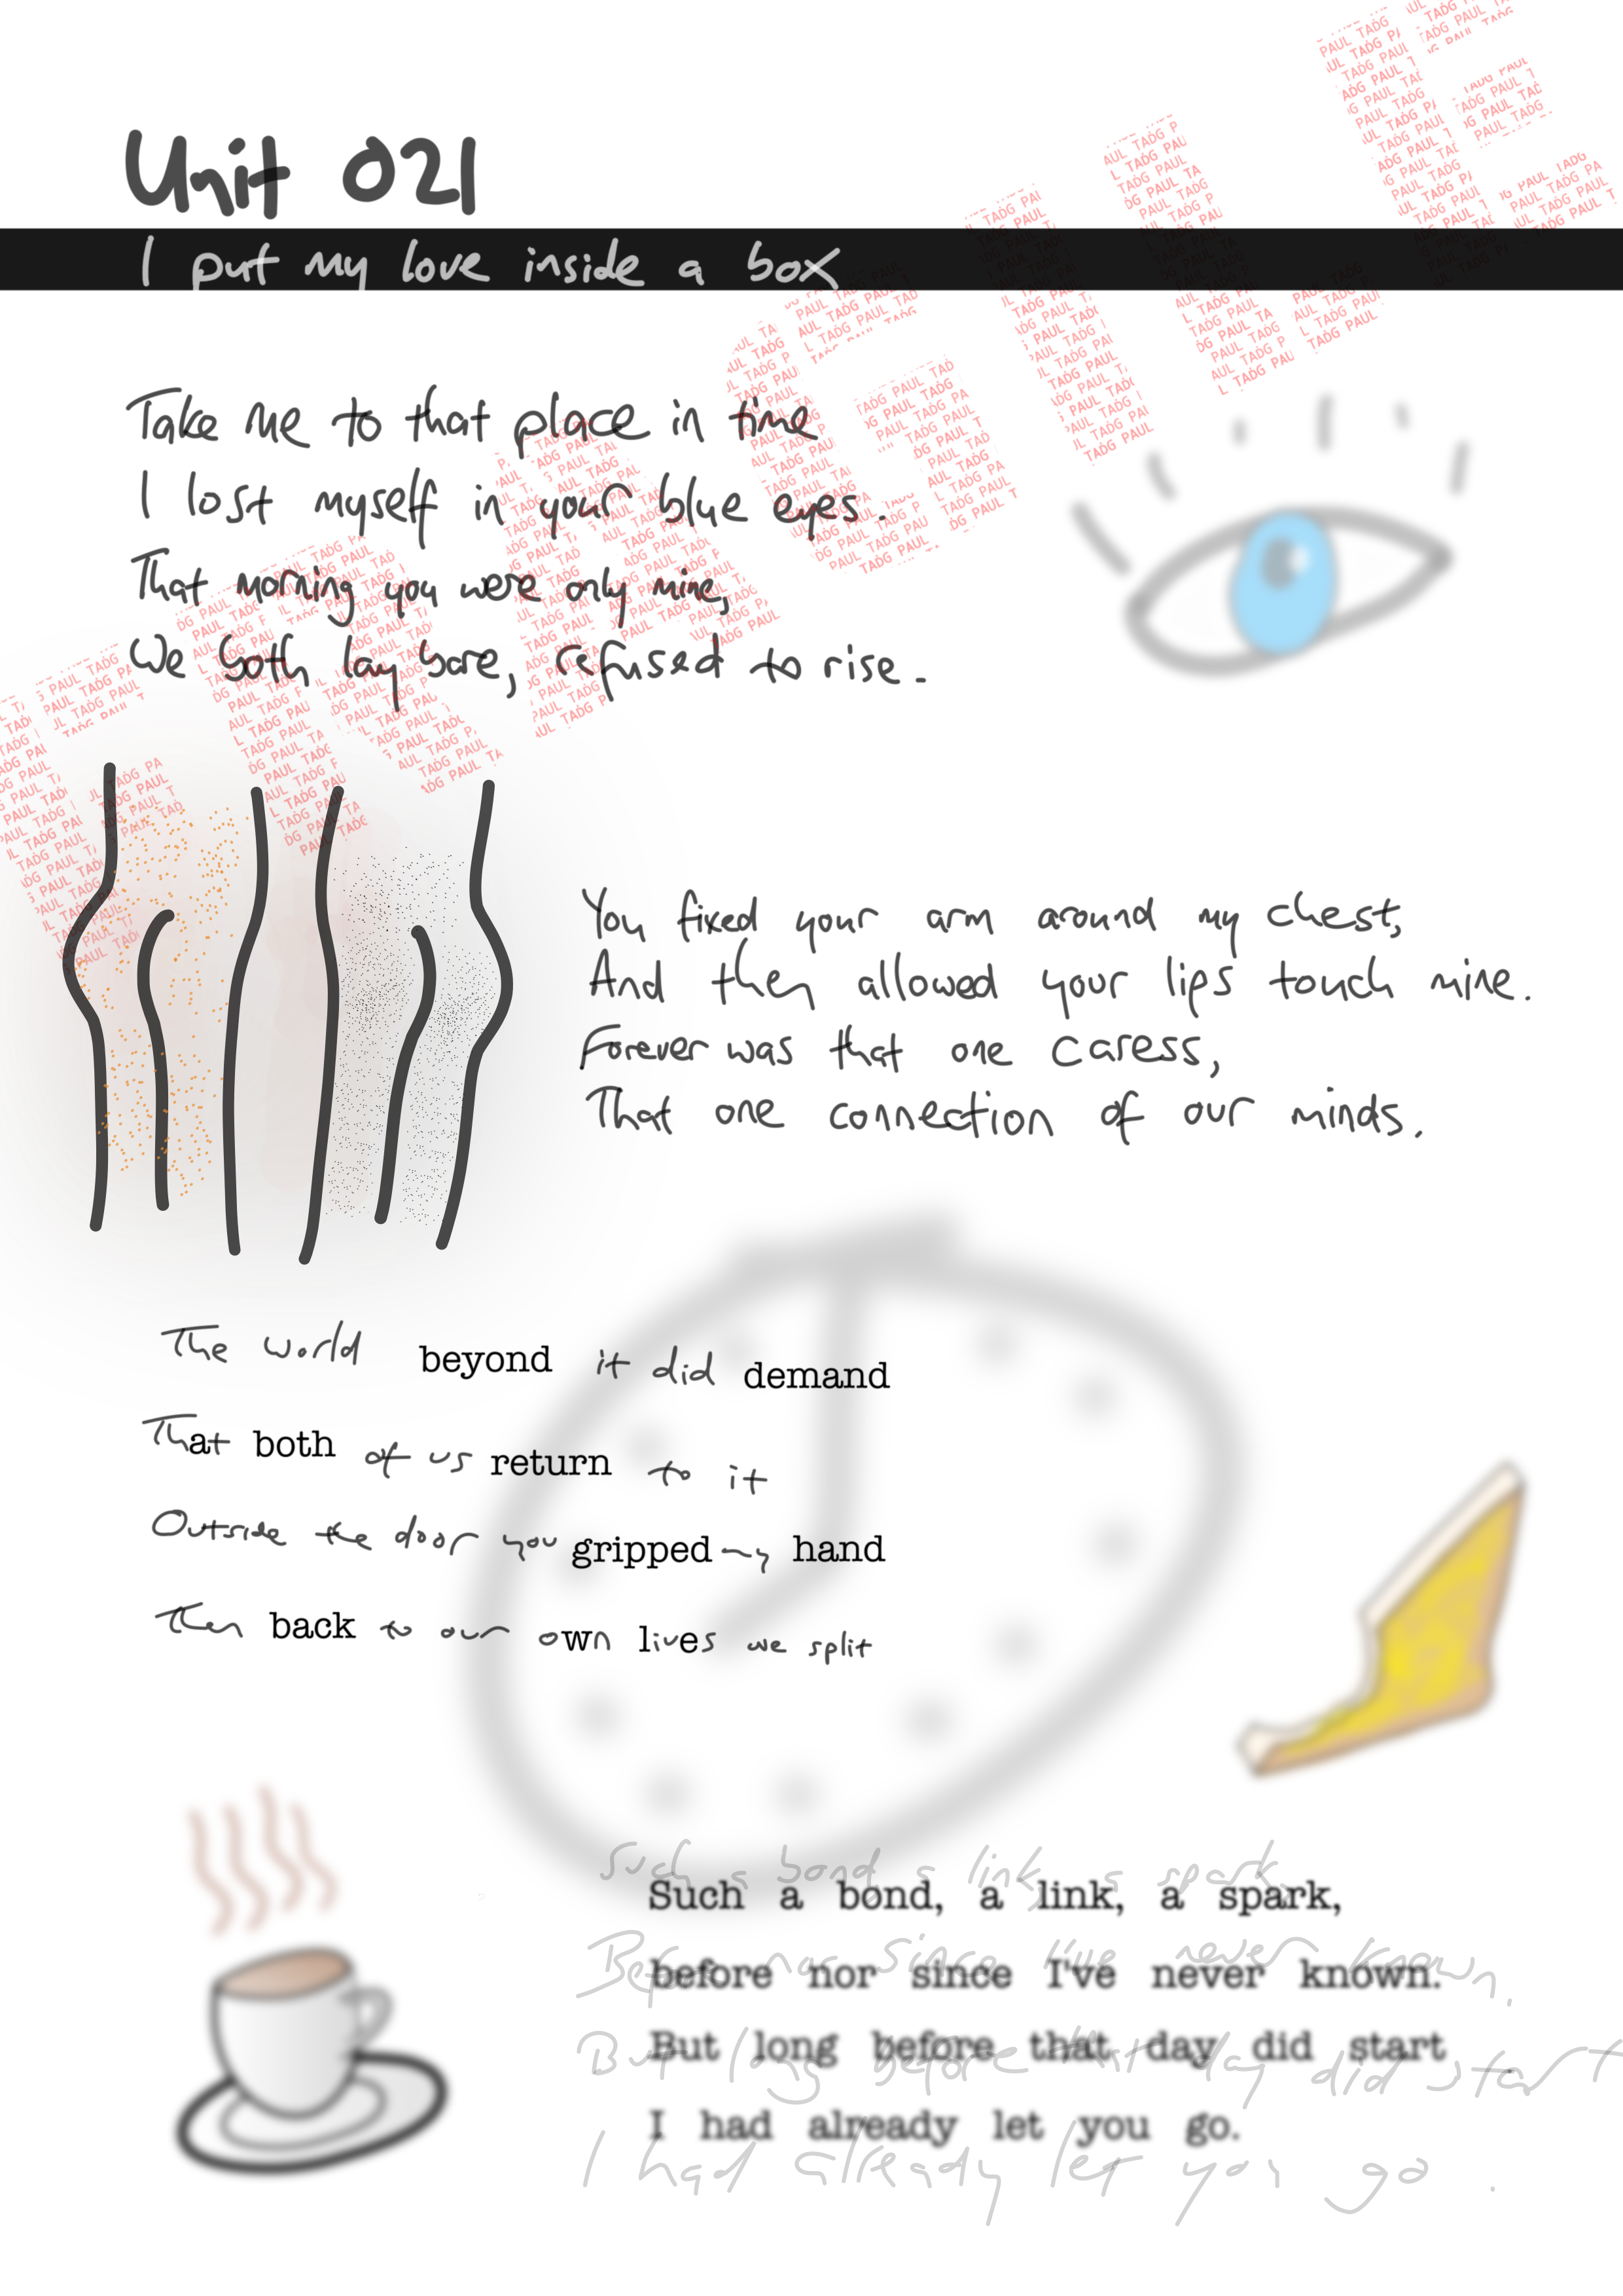 FRAGILE
PAUL TAḊG
Unit 021
I put my love inside a box
Take me to that place in time
I lost myself in your blue eyes.
That morning you were only mine,
We both lay bare, refused to rise.
You fixed your arm around my chest,
And then allowed your lips touch mine.
Forever was that one caress,
That one connection of our minds.
The world beyond it did demand
That both of us return to it
Outside the door you gripped my hand
Then back to our own lives we split
Such a bond, a link, a spark,
Such a bond, a link, a spark,
Before nor since I've never known.
before nor since I've never known.
But long before that day did start
But long before that day did start
I had already let you go.
I had already let you go.